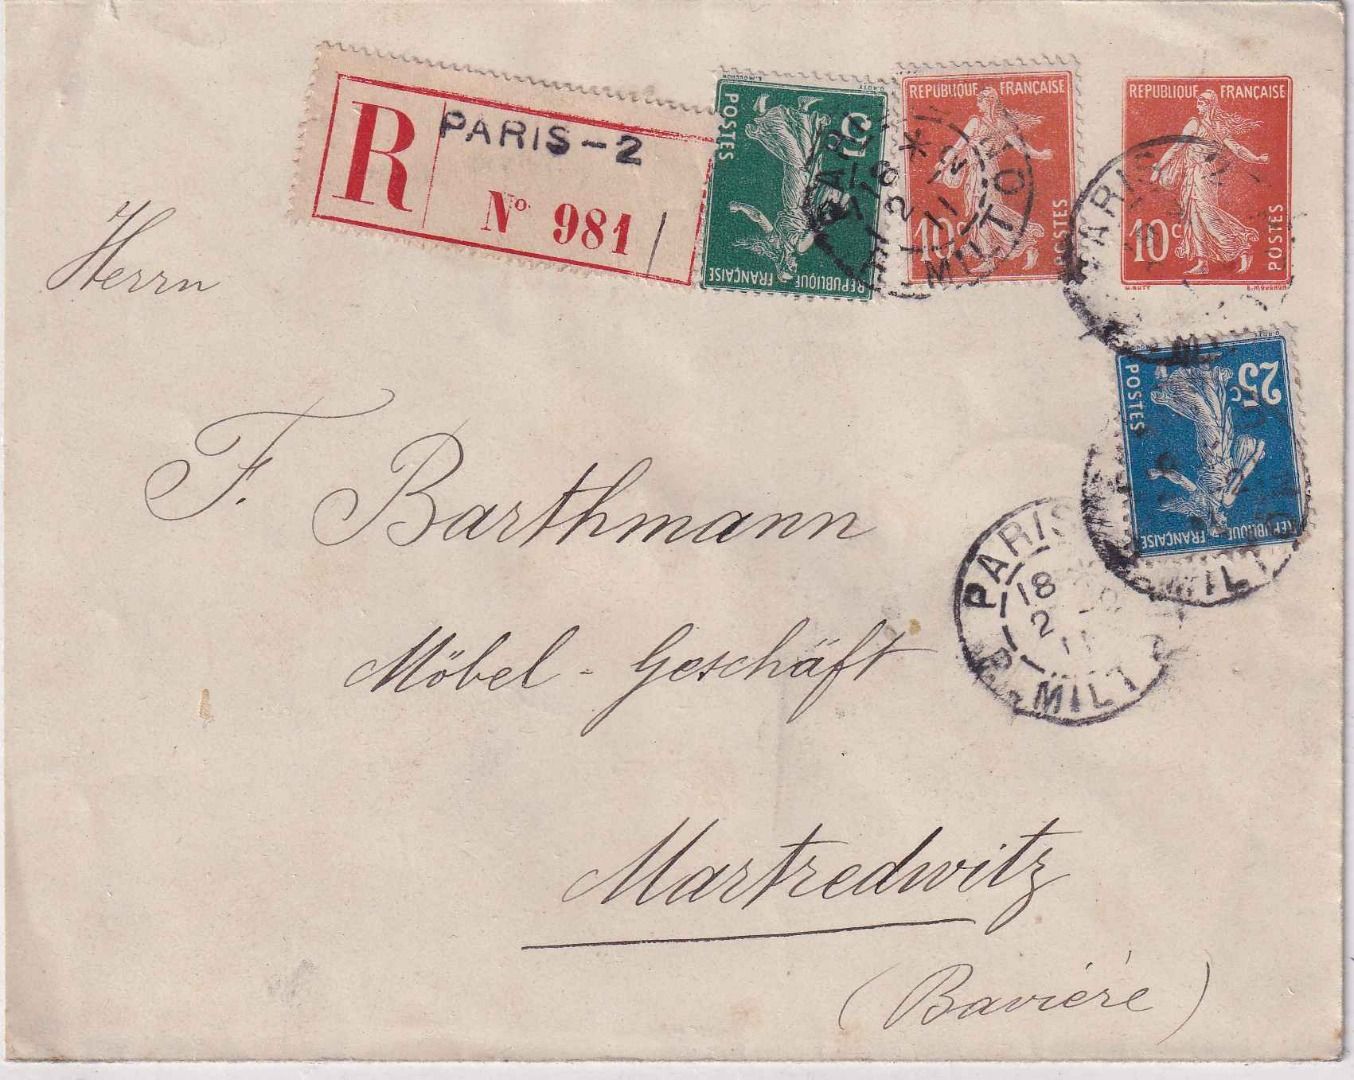 R
PARIS-2
Nº 981
5
POSTES
REPUBLIQUE FRANÇAISE
REPUBLIQUE FRANÇAISE
10c
POSTES
REPUBLIQUE FRANÇAISE
10c
POSTES
25c
POSTES
REPUBLIQUE FRANÇAISE
PARIS
18
2
11
MILTON
PARIS
PARIS
18
2
11
R. MILT
MILT
Herrn
F. Barthmann
Möbel - Geschäft
Martredwitz
(Baviére)